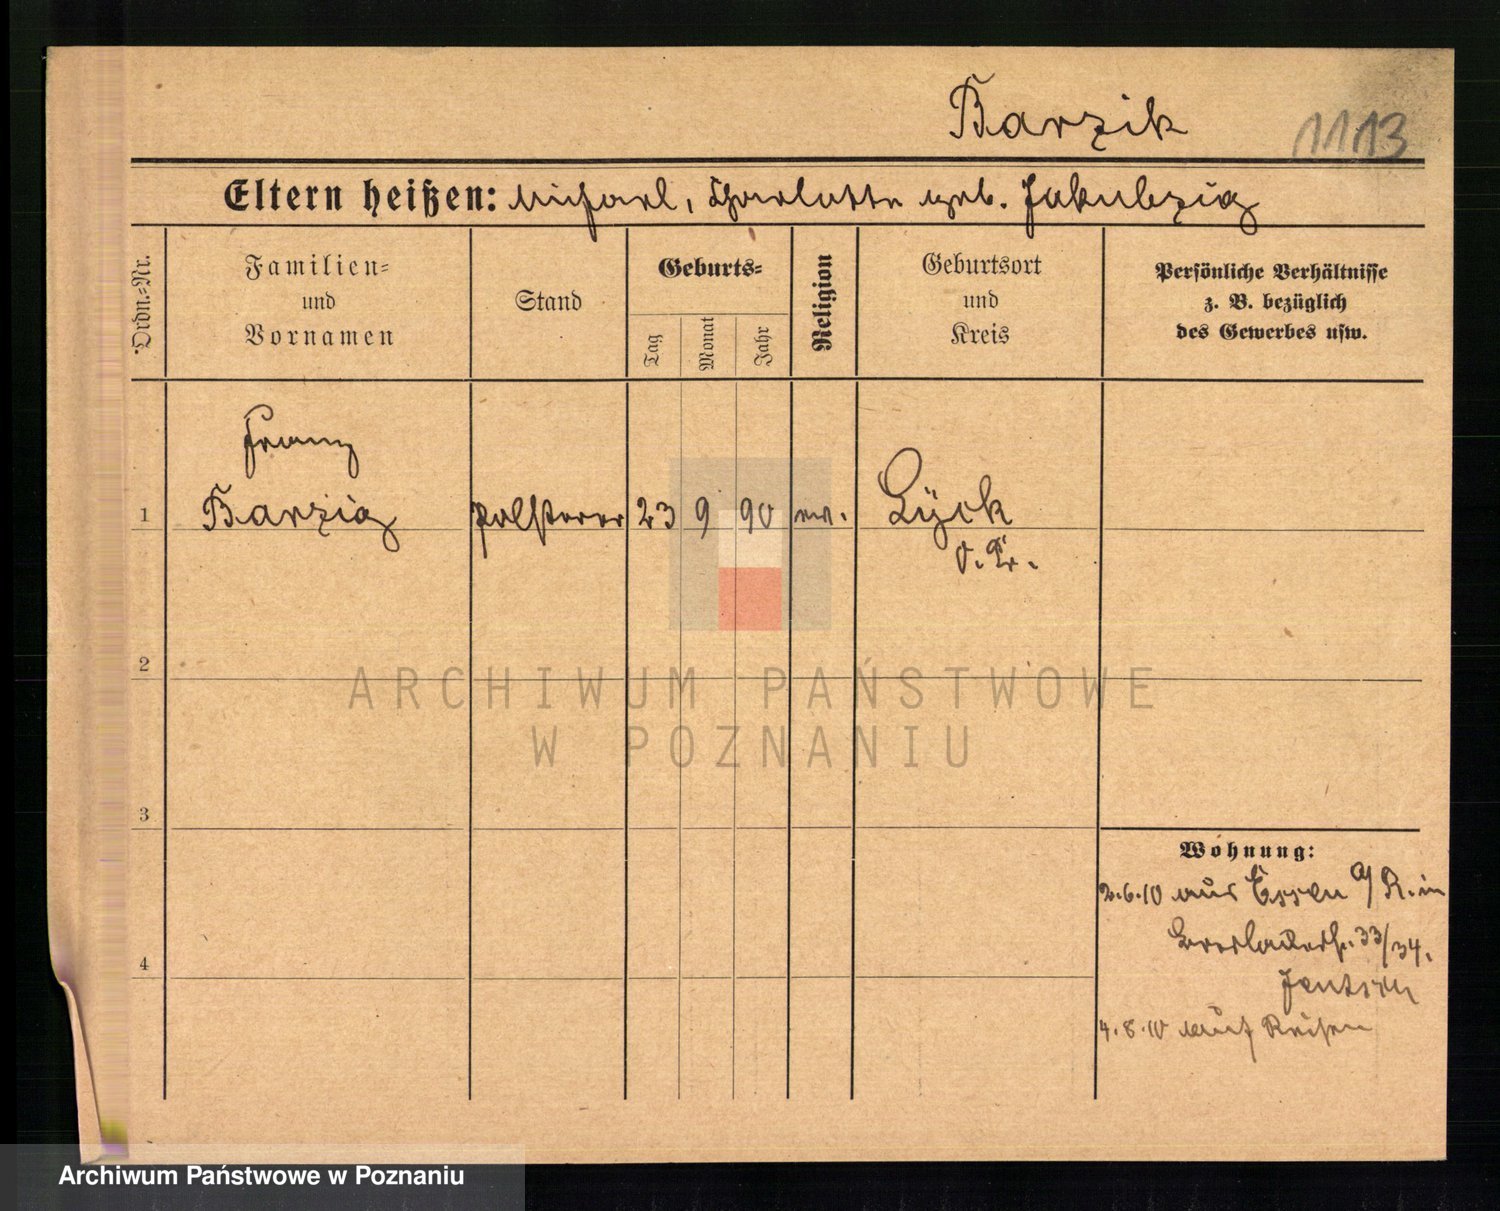 Barzik
1113
Eltern heißen: Michael, Charlotte geb. Jakubzig
Ordn.-Nr.
Familien-
und
Vornamen
Stand
Geburts-
Tag
Monat
Jahr
Religion
Geburtsort
und
Kreis
Persönliche Verhältnisse
z. B. bezüglich
des Gewerbes usw.
Franz
1 Barzig Polsterer 23 9 90 ev. Lyck
o. Pr.
2
ARCHIWUM PAŃSTWOWE
W POZNANIU
3
Wohnung:
2.6.10 aus Essen a/R. in
33/34.
4
Jentsch
4.8.10 auf Reisen
Archiwum Państwowe w Poznaniu